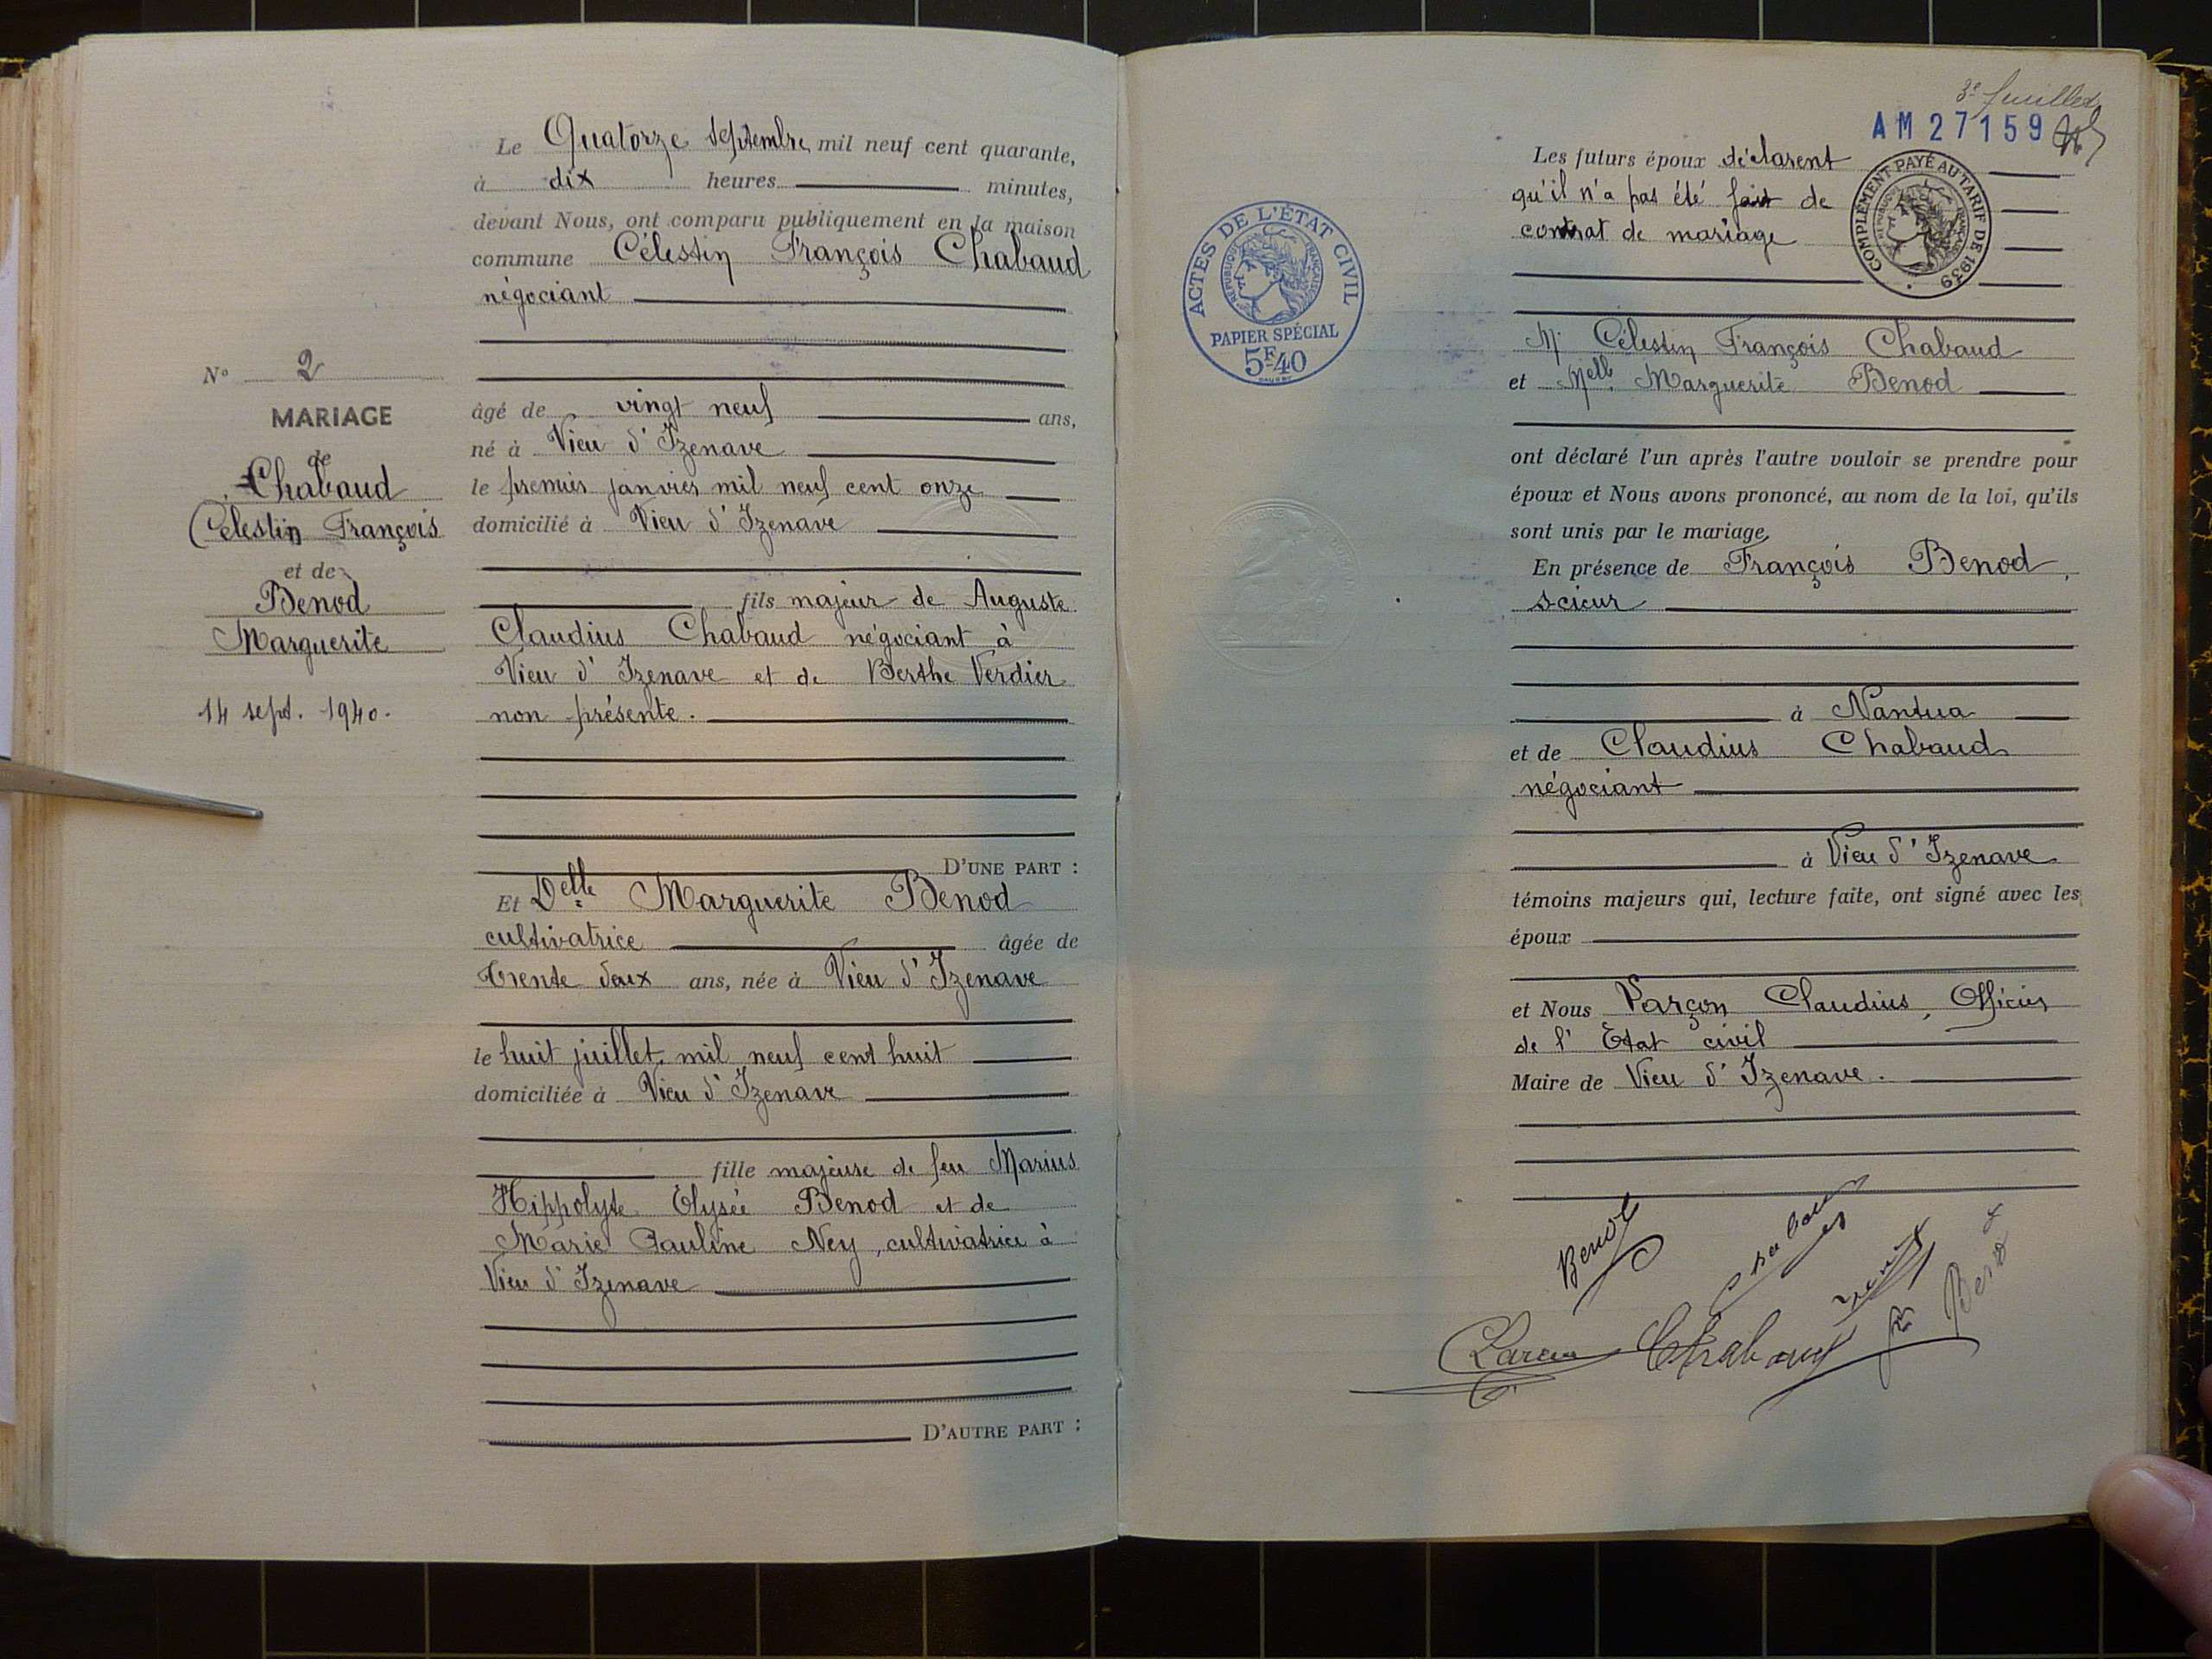 N° 2
MARIAGE
de
Chabaud
Célestin François
et de
Benod
Marguerite
14 sept. 1940.
Le Quatorze septembre mil neuf cent quarante,
à dix heures minutes,
devant Nous, ont comparu publiquement en la maison
commune Célestin François Chabaud
négociant
âgé de vingt neuf ans,
né à Vieu d'Izenave
le premier janvier mil neuf cent onze
domicilié à Vieu d'Izenave
fils majeur de Auguste
Claudius Chabaud négociant à
Vieu d'Izenave et de Berthe Verdier
non présente.
D'UNE PART :
Et Delle Marguerite Benod
cultivatrice âgée de
trente deux ans, née à Vieu d'Izenave
le huit juillet mil neuf cent huit
domiciliée à Vieu d'Izenave
fille majeure de feu Marius
Hippolyte Elysée Benod et de
Marie Pauline Ney, cultivatrice à
Vieu d'Izenave
D'AUTRE PART :
3e feuillet
AM27159
ACTES DE L'ÉTAT CIVIL
RÉPUBLIQUE FRANÇAISE
PAPIER SPÉCIAL
5F40
COMPLÉMENT PAYÉ AU TARIF DE 1939
RÉPUBLIQUE FRANÇAISE
Les futurs époux déclarent
qu'il n'a pas été fait de
contrat de mariage
M. Célestin François Chabaud
et Melle Marguerite Benod
ont déclaré l'un après l'autre vouloir se prendre pour
époux et Nous avons prononcé, au nom de la loi, qu'ils
sont unis par le mariage,
En présence de François Benod,
scieur
à Nantua
et de Claudius Chabaud
négociant
à Vieu d'Izenave
témoins majeurs qui, lecture faite, ont signé avec les
époux
et Nous Parçon Claudius, Officier
de l'Etat civil
Maire de Vieu d'Izenave.
Benod
Chabaud
Benod
Parçon